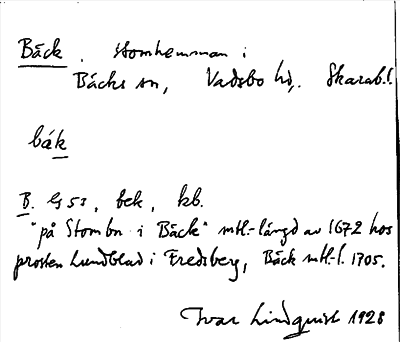 Bäck. stomhemman i
Bäcks sn, Vadsbo hd, Skarab.l.
bák
B. G 53, bek, kb.
"på Stombn i Bäck" mtl.-längd av 1672 hos
prosten Lundblad i Fredsberg, Bäck mtl-l. 1705.
Ivar Lindquist 1928